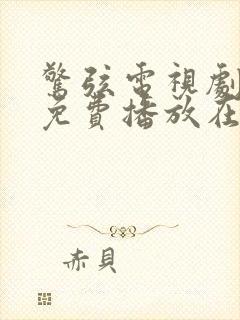 驚弦電視劇
免費播放在
赤貝